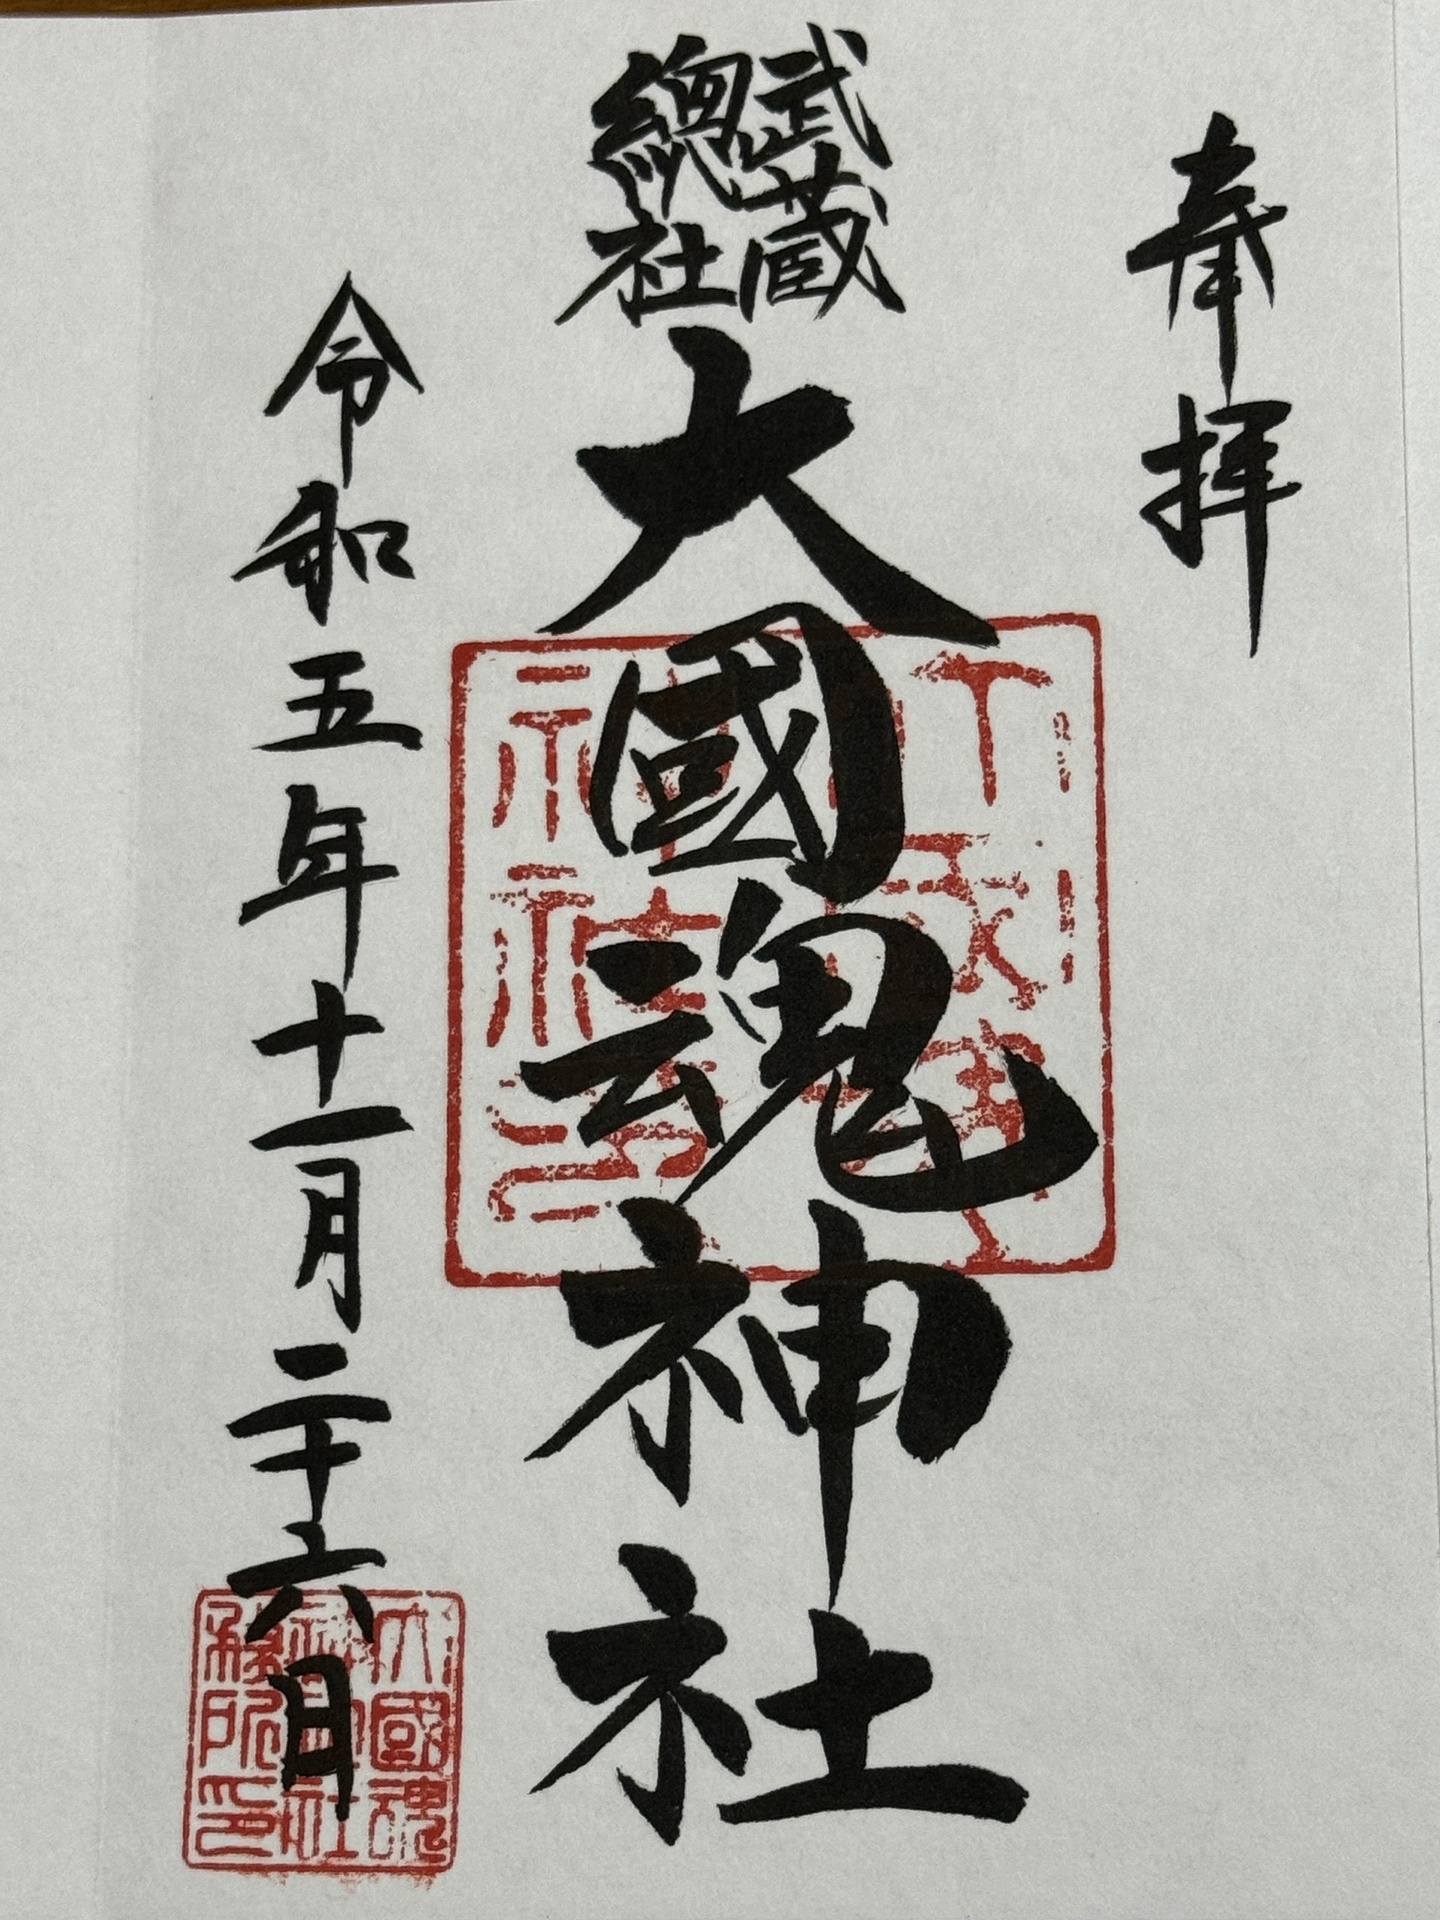 奉拝
武蔵
總社
大國魂神社
令和五年十一月二十六日
大國魂
神社
務所印